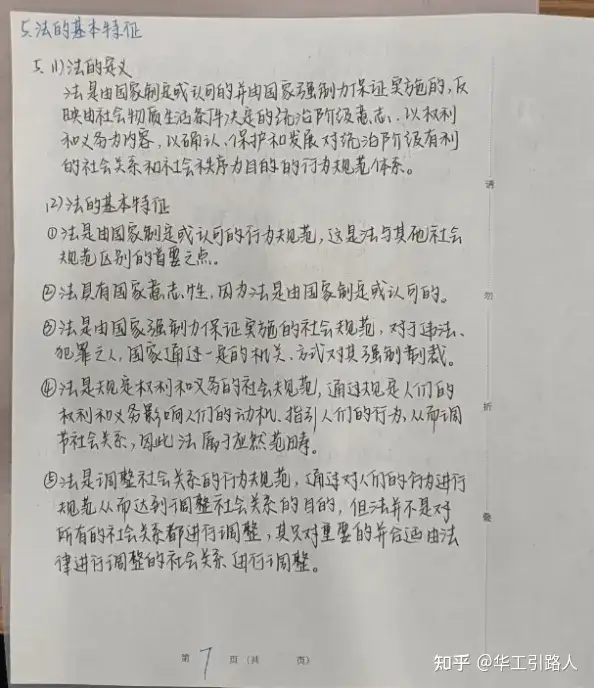 5. 法的基本特征
5. (1) 法的定义
法是由国家制定或认可的并由国家强制力保证实施的,反
映由社会物质生活条件决定的统治阶级意志、以权利
和义务为内容,以确认、保护和发展对统治阶级有利
的社会关系和社会秩序为目的的行为规范体系。
(2) 法的基本特征
①法是由国家制定或认可的行为规范,这是法与其他社会
规范区别的首要之点。
②法具有国家意志性,因为法是由国家制定或认可的。
③法是由国家强制力保证实施的社会规范,对于违法、
犯罪之人,国家通过一定的机关、方式对其强制制裁。
④法是规定权利和义务的社会规范,通过规定人们的
权利和义务影响人们的动机、指引人们的行为,从而调
节社会关系,因此法属于应然范畴。
⑤法是调整社会关系的行为规范,通过对人们的行为进行
规范从而达到调整社会关系的目的,但法并不是对
所有的社会关系都进行调整,其只对重要的并合适由法
律进行调整的社会关系进行调整。
请
勿
折
叠
第 7 页(共 页)
知乎 @华工引路人